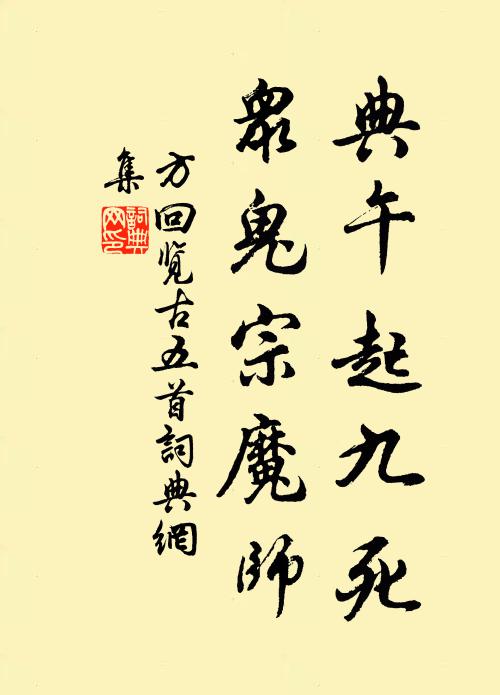 典午起九死
眾鬼宗魔師
方回览古五首詞典網
集
詞典網印